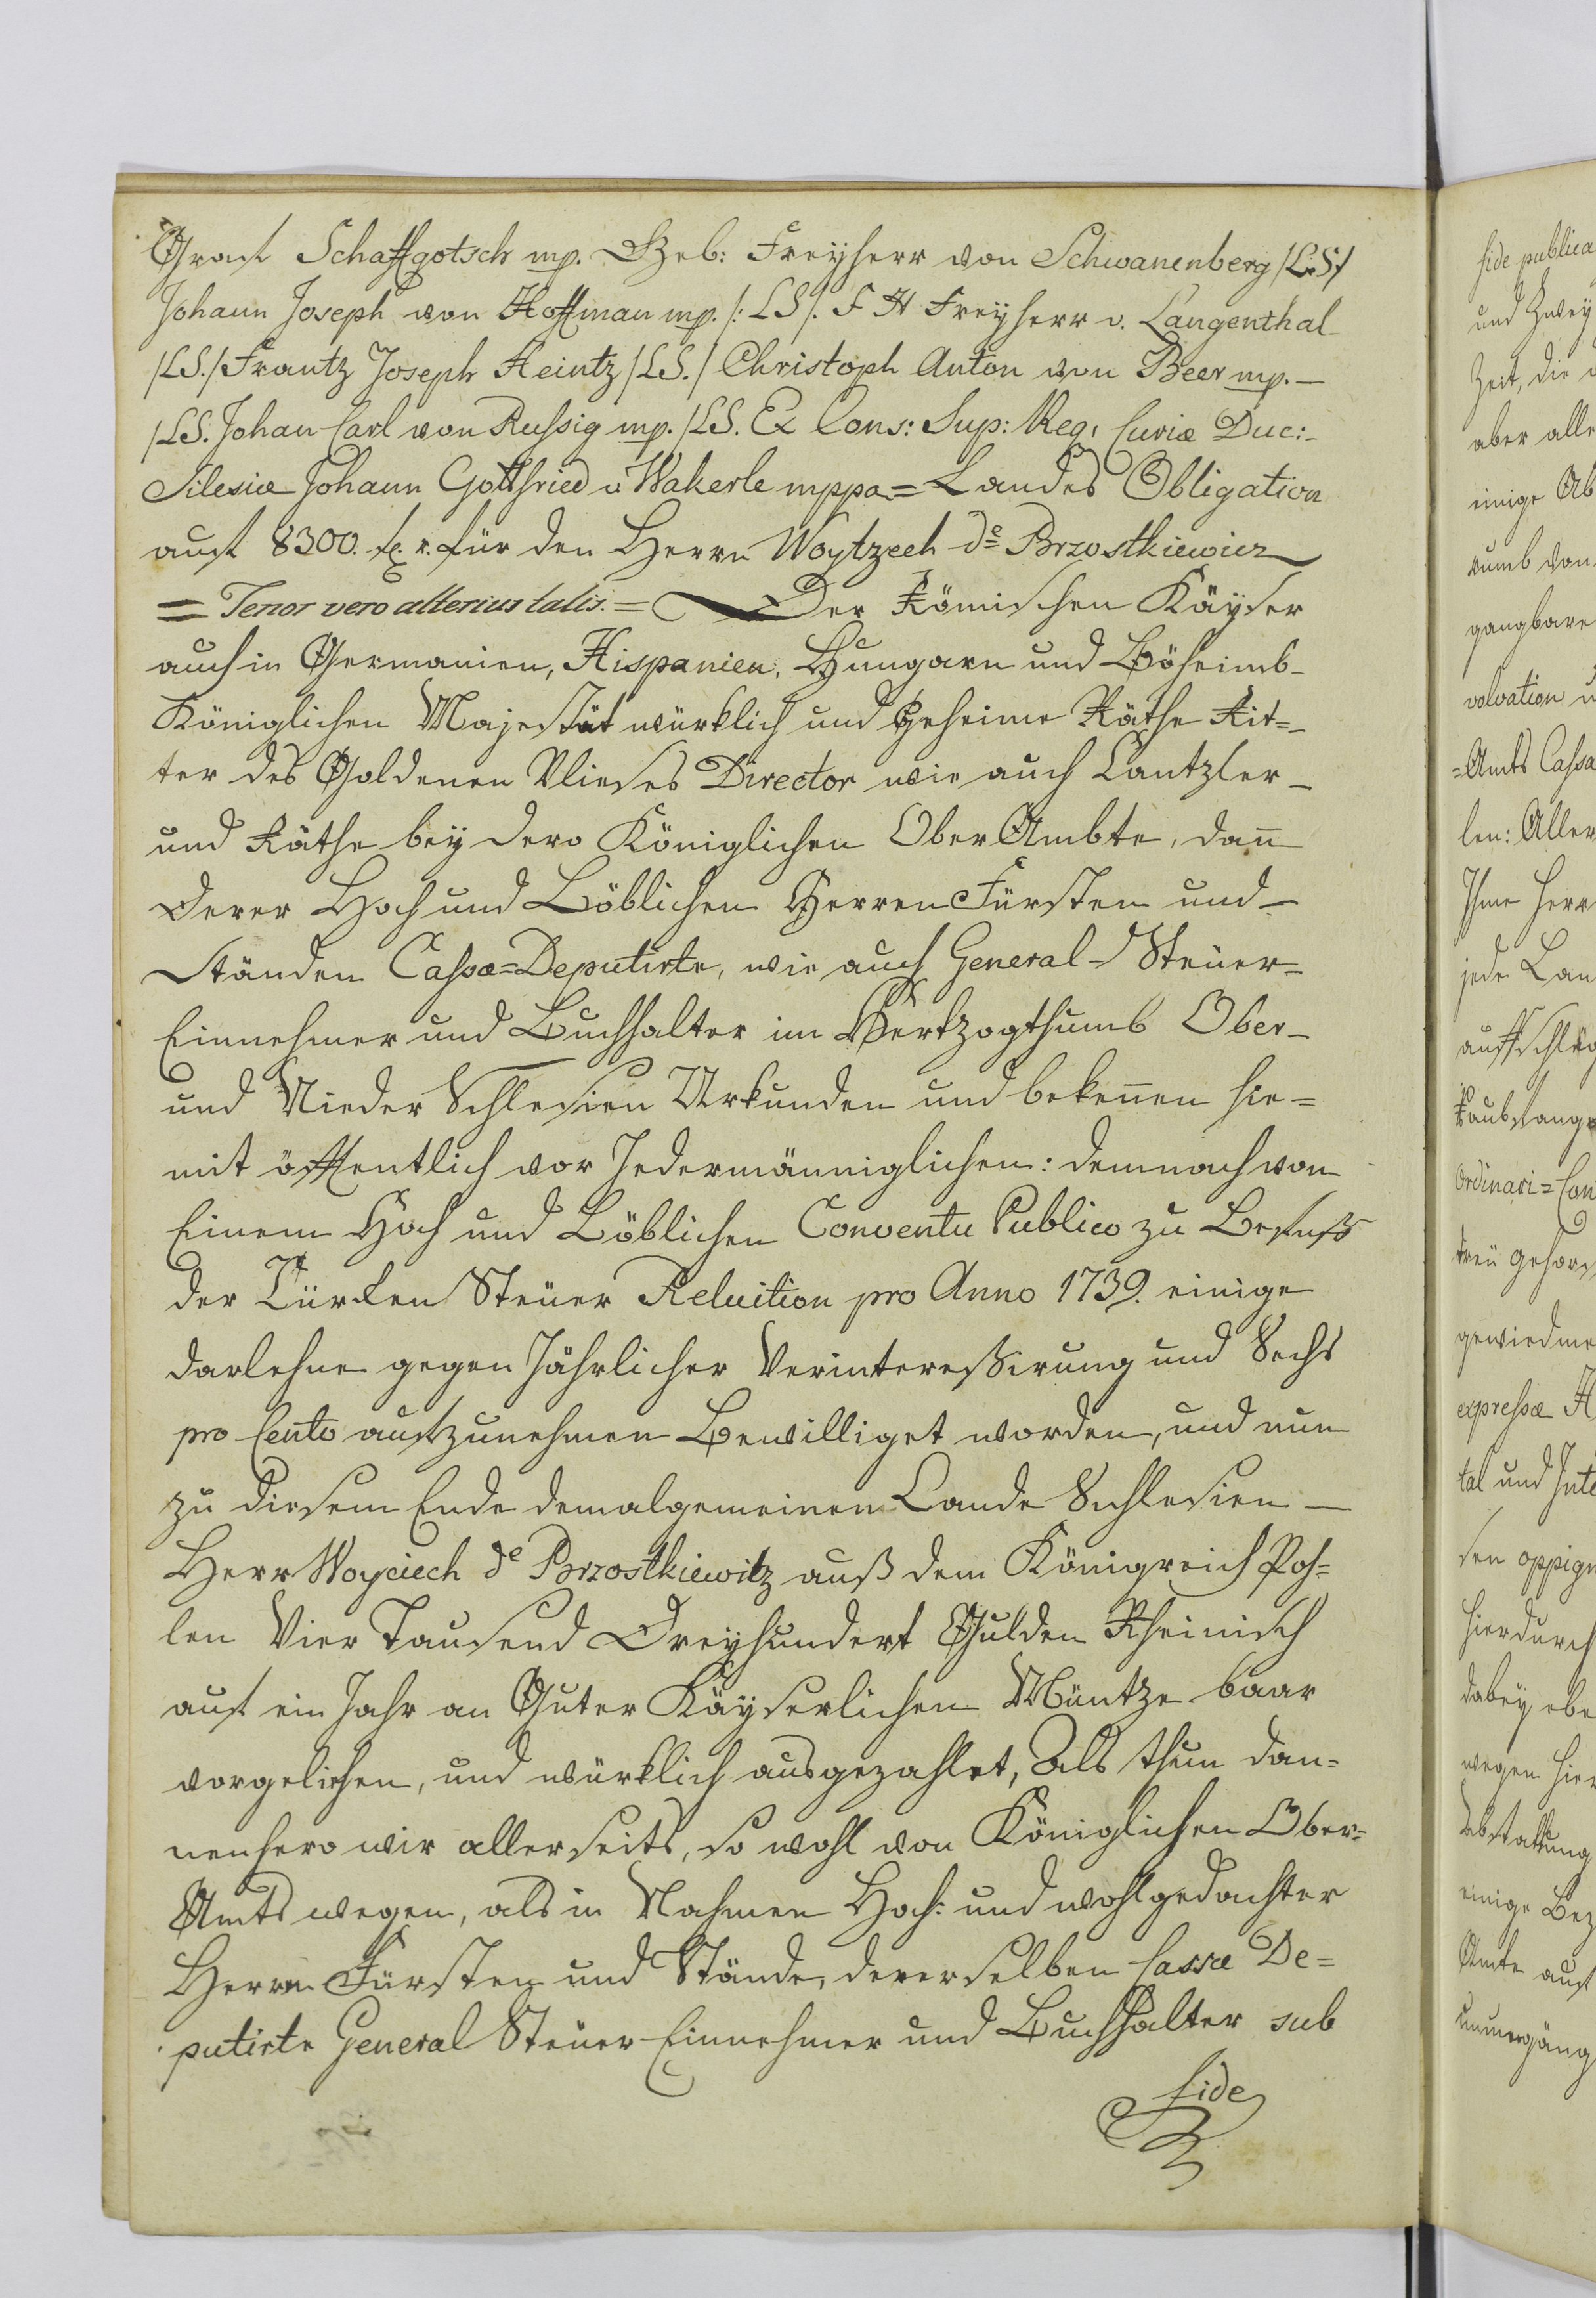 Graff Schaffgotsch mp. Seb: Freyherr von Schwanenberg /L:S:/
Johann Joseph von Hoffman mp. /: LS /. F H Freyherr v. Langenthal
/LS./ Frantz Joseph Heintz /LS./ Christoph Anton von Beer mp. –
/LS. Johan Carl von Rußig mp. /LS. Ex Cons: Sup: Reg: Curiæ Duc: –
Silesiæ Johann Gottfried v Wakerle mppa = Landes Obligation
auff 8300. fl. r. für den Herrn Woytzech de Brzostkiewicz
= Tenor vero alterius talis. = Der Römischen Käyser
auch in Germanien, Hispanien, Hungarn und Böheimb –
Königlichen Majestät würklich und Geheime Räthe Rit=
ter des Goldenen Vlieses Director wie auch Cantzler –
und Räthe bey dero Königlichen Ober Ambte, dann
Derer Hoch und Löblichen Herren Fürsten und –
Ständen Cassæ=Deputirte, wie auch General–Steüer=
Einnehmer und Buchhalter im Hertzogthumb Ober –
und Nieder Schlesien Urkunden und bekennen hie=
mit öffentlich vor Jedermänniglichen: demnach von
Einem Hoch und Löblichen Conventu Publico zu Behuff
der Türcken Steüer Reluition pro Anno 1739. einige
darlehne gegen Jährlicher Verinteressirung und Sechs
pro Cento auffzunehmen Bewilliget worden, und nun
zu diesem Ende dem algemeinen Lande Schlesien –
Herr Woyciech de Brzostkiewitz auß dem Königreich Poh=
len Vier Tausend Dreyhundert Gulden Rheinisch
auff ein Jahr an Guter Käyserlichen Müntze baar
vorgeliehen, und würklich ausgezahlet, Als thun dan=
nenhero wir allerseits, so wohl von Königlichen Ober=
Amts wegen, als in Nahmen Hoch= und wohlgedachter
Herrn Fürsten und Stände, deroselben Cassæ De=
putirte General Steüer Einnehmer und Buchhalter sub
fide
fide publica
und Zwey
Zeit, die
aber alle
einige Ab
rumb von
gangbare
valvation
=Amts Cassa
len: Aller
Ihme Herr
jede Lan
auffschläg
Ordinari=Con
treü gehors
gewiedme
expresse H
tal und Inte
sen oppign
hierdurch
dabey ebe
wegen hier
Abstattung
einige Bez
Amte auff